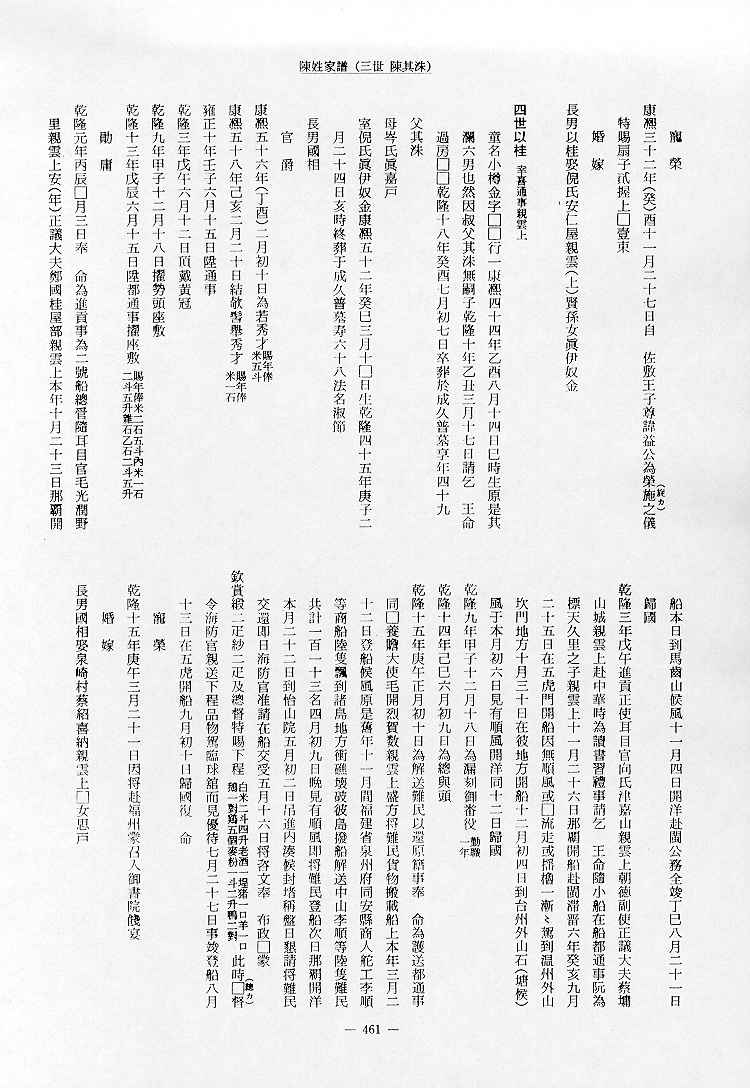 陳姓家譜（三世 陳其洙）
寵榮
康熙三十二年（癸）酉十一月二十七日自　佐敷王子尊諱益公為榮施之儀（旋カ）
特賜扇子貳握上□壹束
婚嫁
長男以桂娶倪氏安仁屋親雲（上）賢孫女眞伊奴金
四世以桂　幸喜通事親雲上
童名小樽金字□□行一康熙四十四年乙酉八月十四日巳時生原是其
瀾六男也然因叔父其洙無嗣子乾隆十年乙丑三月十七日請乞　王命
過房□□乾隆十八年癸酉七月初七日卒葬於成久普墓享年四十九
父其洙
母岑氏眞嘉戸
室倪氏眞伊奴金康熙五十二年癸巳三月十□日生乾隆四十五年庚子二
月二十四日亥時終葬于成久普墓寿六十八法名淑節
長男國相
官爵
康熙五十六年（丁酉）二月初十日為若秀才　賜年俸米五斗
康熙五十八年己亥二月二十日結敬髻舉秀才　賜年俸米一石
雍正十年壬子六月十五日陞通事
乾隆三年戊午六月十二日頂戴黃冠
乾隆九年甲子十二月十八日擢勢頭座敷
乾隆十三年戊辰六月十五日陞都通事擢座敷　賜年俸米二石五斗內米一石二斗五升雜石乙石二斗五升
勛庸
乾隆元年丙辰□月三日奉　命為進貢事為二號船總管隨耳目官毛光潤野
里親雲上安（年）正議大夫鄭國桂屋部親雲上本年十月二十三日那覇開
船本日到馬齒山候風十一月四日開洋赴閩公務全竣丁巳八月二十一日
歸國
乾隆三年戊午進貢正使耳目官向氏津嘉山親雲上朝德副使正議大夫蔡墉
山城親雲上赴中華時為讀書習禮事請乞　王命隨小船在船都通事阮為
標天久里之子親雲上十一月二十六日那覇開船赴閩滯留六年癸亥九月
二十五日在五虎門開船因無順風或□流走或搖櫓一漸〻駕到温州外山
坎門地方十月三十日在彼地方開船十二月初四日到台州外山石（塘候）
風于本月初六日見有順風開洋同十二日歸國
乾隆九年甲子十二月十八日為漏刻御番役　勤職一年
乾隆十四年己巳六月初九日為總與頭
乾隆十五年庚午正月初十日為解送難民以還原籍事奉　命為護送都通事
同□養贍大使毛開烈賀数親雲上盛方將難民貨物搬載船上本年三月二
十二日登船候風原是舊年十一月間福建省泉州府同安縣商人舵工李順
等商船陸隻飄到諸島地方衝礁壊破彼島撥船解送中山李順等陸隻難民
共計一百一十三名四月初九日晚見有順風即將難民登船次日那覇開洋
本月二十二日到怡山院五月初二日吊進内湊候封堵稱盤日懇請将難民
交還即日海防官准請在船交受五月十六日将咨文奉　布政□蒙
欽賞緞二疋紗二疋及總督特賜下程　白米二斗四升老酒一埕猪一口羊一口鵝一對鶏五個麥粉一斗二升鴨二對　此時□督（總カ）
令海防官親送下程品物駕臨球舘而見優待七月二十七日事竣登船八月
十三日在五虎開船九月初十日歸國復　命
寵榮
乾隆十五年庚午三月二十一日因将赴福州蒙召入御書院餞宴
婚嫁
長男國相娶泉崎村蔡紹喜納親雲上□女思戸
— 461 —